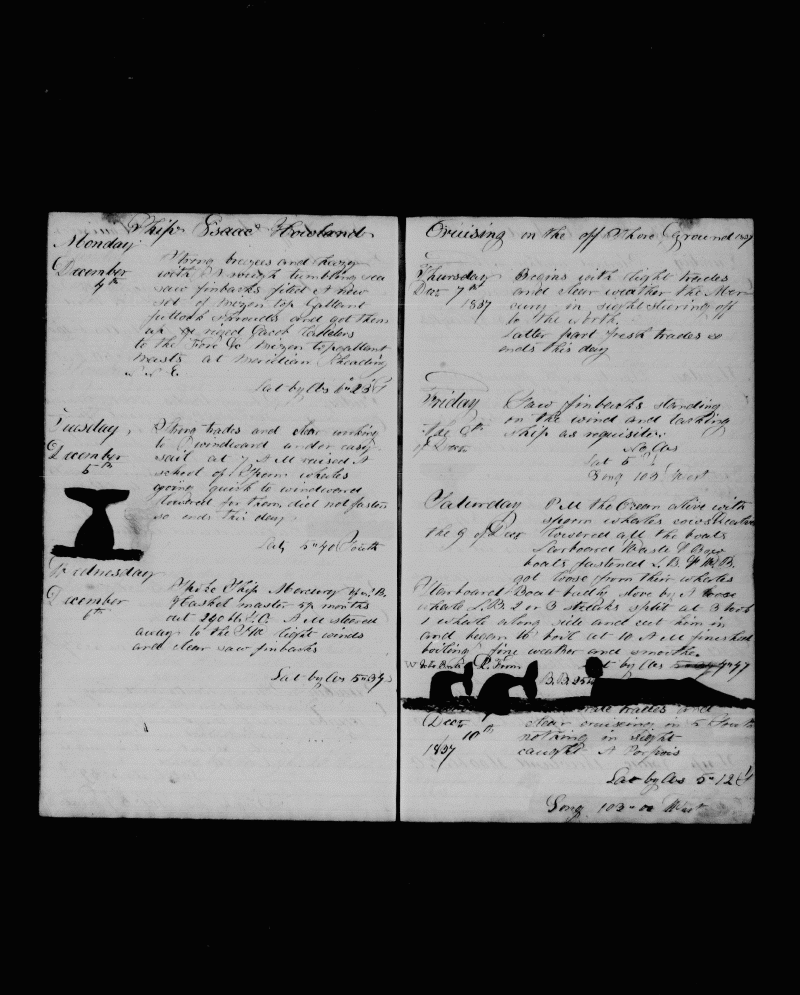 Ship Isaac Howland
Monday
December
4th
Strong breezes and hazy
with A rough tumbling sea
saw finbacks fited A new
set of mizen top Gallant
futtock shrouds and got them
up
to the Fore & mizen topgallant
masts at meridian Heading
S.S.E.
Lat by Obs
Tuesday
December
5th
Strong trades and clear working
to windward under easy
sail at 7 A M raised A
school of Sperm whales
going quick to windward
lowered for them did not fasten
so ends this day
Lat 5"40 South
Wednesday
December
6th
Ship Mercury of N.B.
Haskel master months
out 240 bbls A M steered
away to the light winds
and clear saw finbacks
Lat by Obs
Cruising in the off Shore Ground 1837
Thursday
Dec 7th
1837
Begins with light trades
and clear weather the Mer
cury in sight stering off
to the north
Latter part fresh trades so
ends this day
Friday
the 8th
of Dec
Saw finbacks standing
on the wind and tacking
ship as requisite
No Obs
Lat 5
Long 103 West
Saturday
the 9 of Dec
P M the Ocean alive with
sperm whales
lowered all the boats
Larboard Waist & Bow
boats fastened L.B. & W.B.
got loose from their whales
Starboard Boat badly stove by A loose
whale L.B. 2 or 3 streaks split at 3 took
1 whale along side and cut him in
and began to boil at 10 A M finished
boiling fine weather and smooth
Lat by Obs
trades and
Dec
10th
1837
clear cruising in 5 South
nothing in sight
caught A Porpois
Lat by Obs 5"12 S
Long 103"00 West